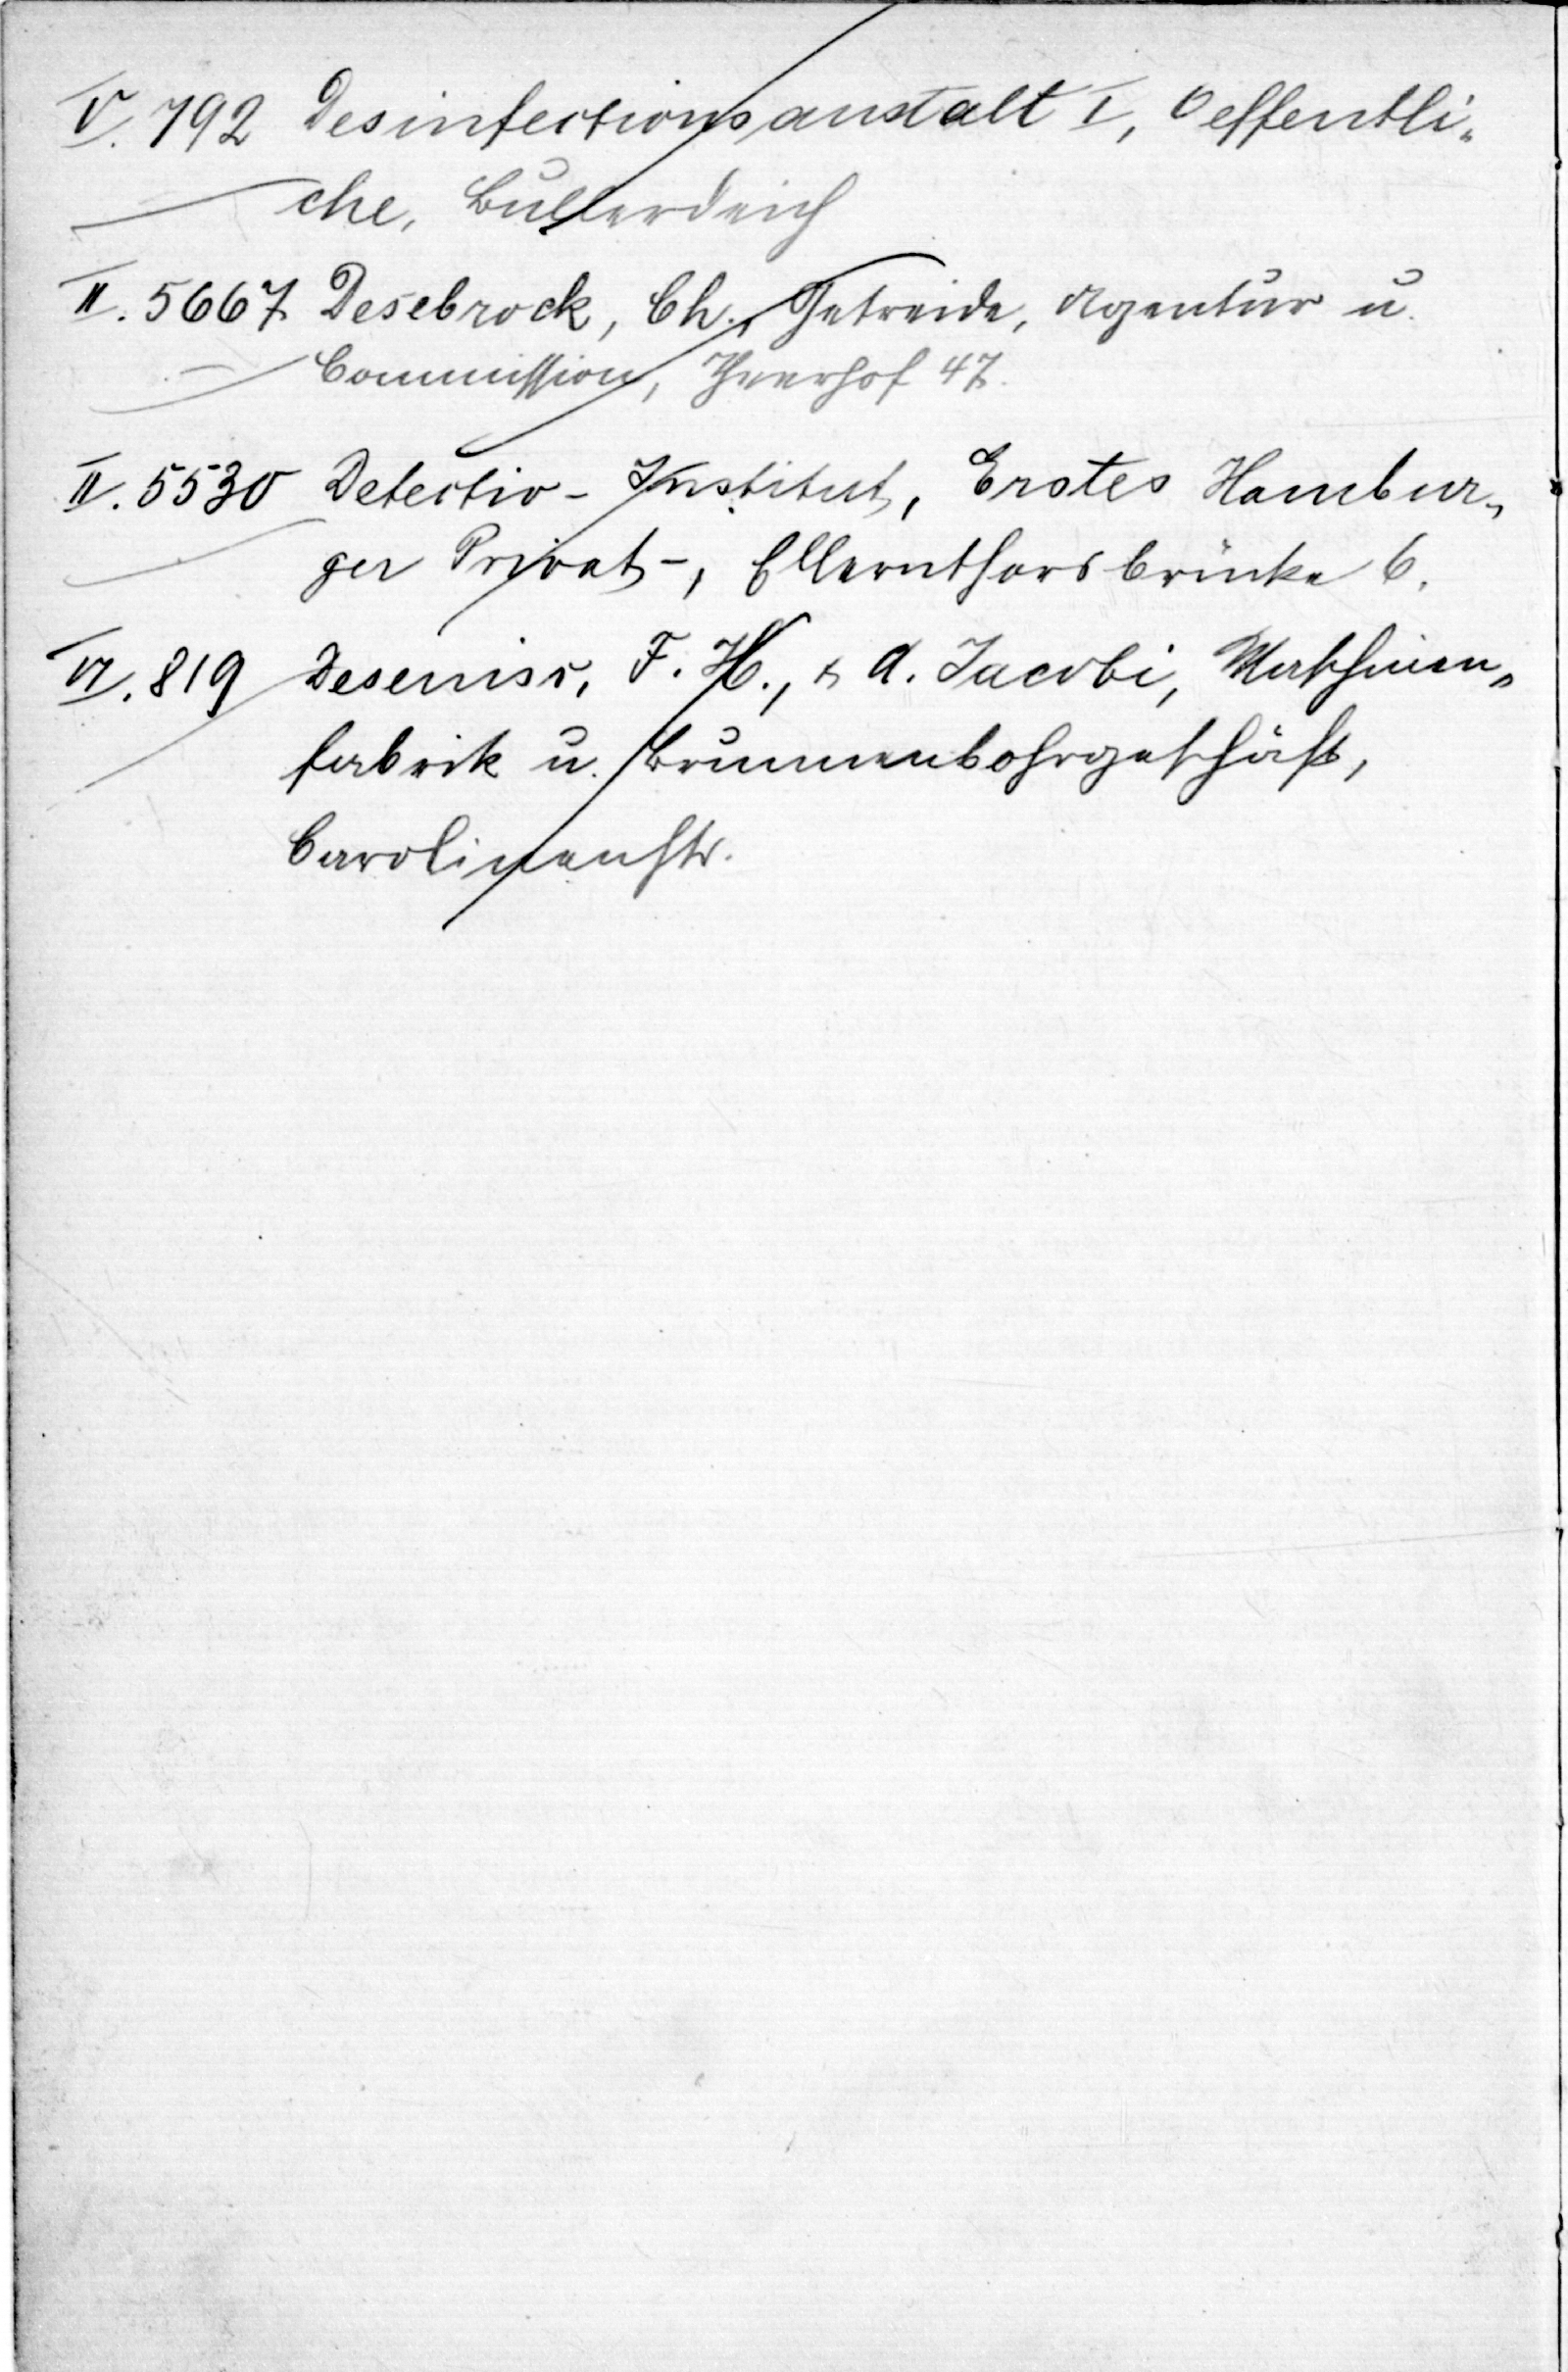 V. 792 Desinfectionsanstalt I, Oeffentli-
che, Bullerdeich
II. 5667 Desebrock, Ch., Getreide, Agentur u.
Commission, 47.
II. 5530 Detectiv-Institut, Erstes Hambur-
ger Privat-, Ellernthorsbrücke 6.
VI. 819 Deseniss, F. H., & A. Jacobi, Maschinen-
fabrik u. Brunnenbohrgeschäft,
Carolinenstr.